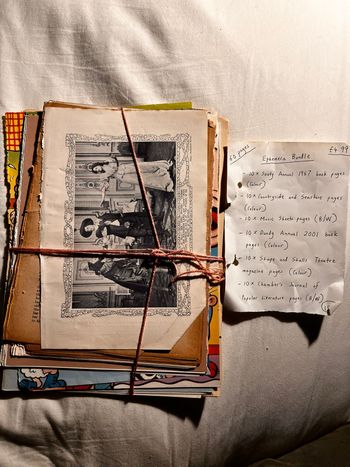 60 pages
£4.99
Ephemera Bundle
- 10 x Sooty Annual 1967 book pages
(Colour)
- 10 x Countryside and Seashore pages
(colour)
- 10 x Music Sheets pages (B/W)
- 10 x Dandy Annual 2001 book
pages (colour)
- 10 x Stage and Stalls Theatre
magazine pages (colour)
- 10 x Chamber's Journal of
Popular Literature pages (B/W)